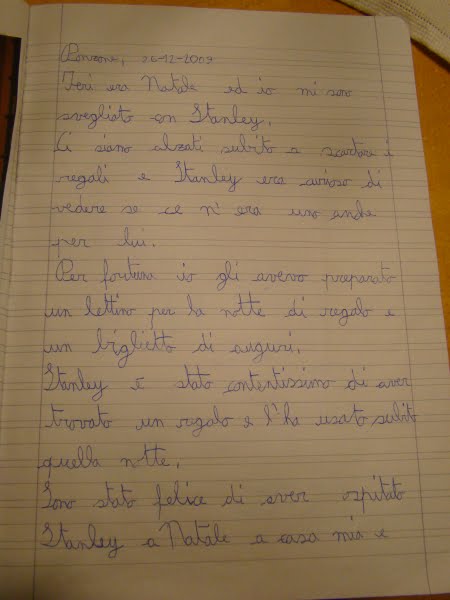 Ponzone, 26-12-2009
Ieri era Natale ed io mi sono
svegliato con Stanley.
Ci siamo alzati subito a scartare i
regali e Stanley era curioso di
vedere se ce n'era uno anche
per lui.
Per fortuna io gli avevo preparato
un lettino per la notte di regalo e
un biglietto di auguri.
Stanley è stato contentissimo di aver
trovato un regalo e l'ha usato subito
quella notte.
Sono stato felice di aver ospitato
Stanley a Natale a casa mia e